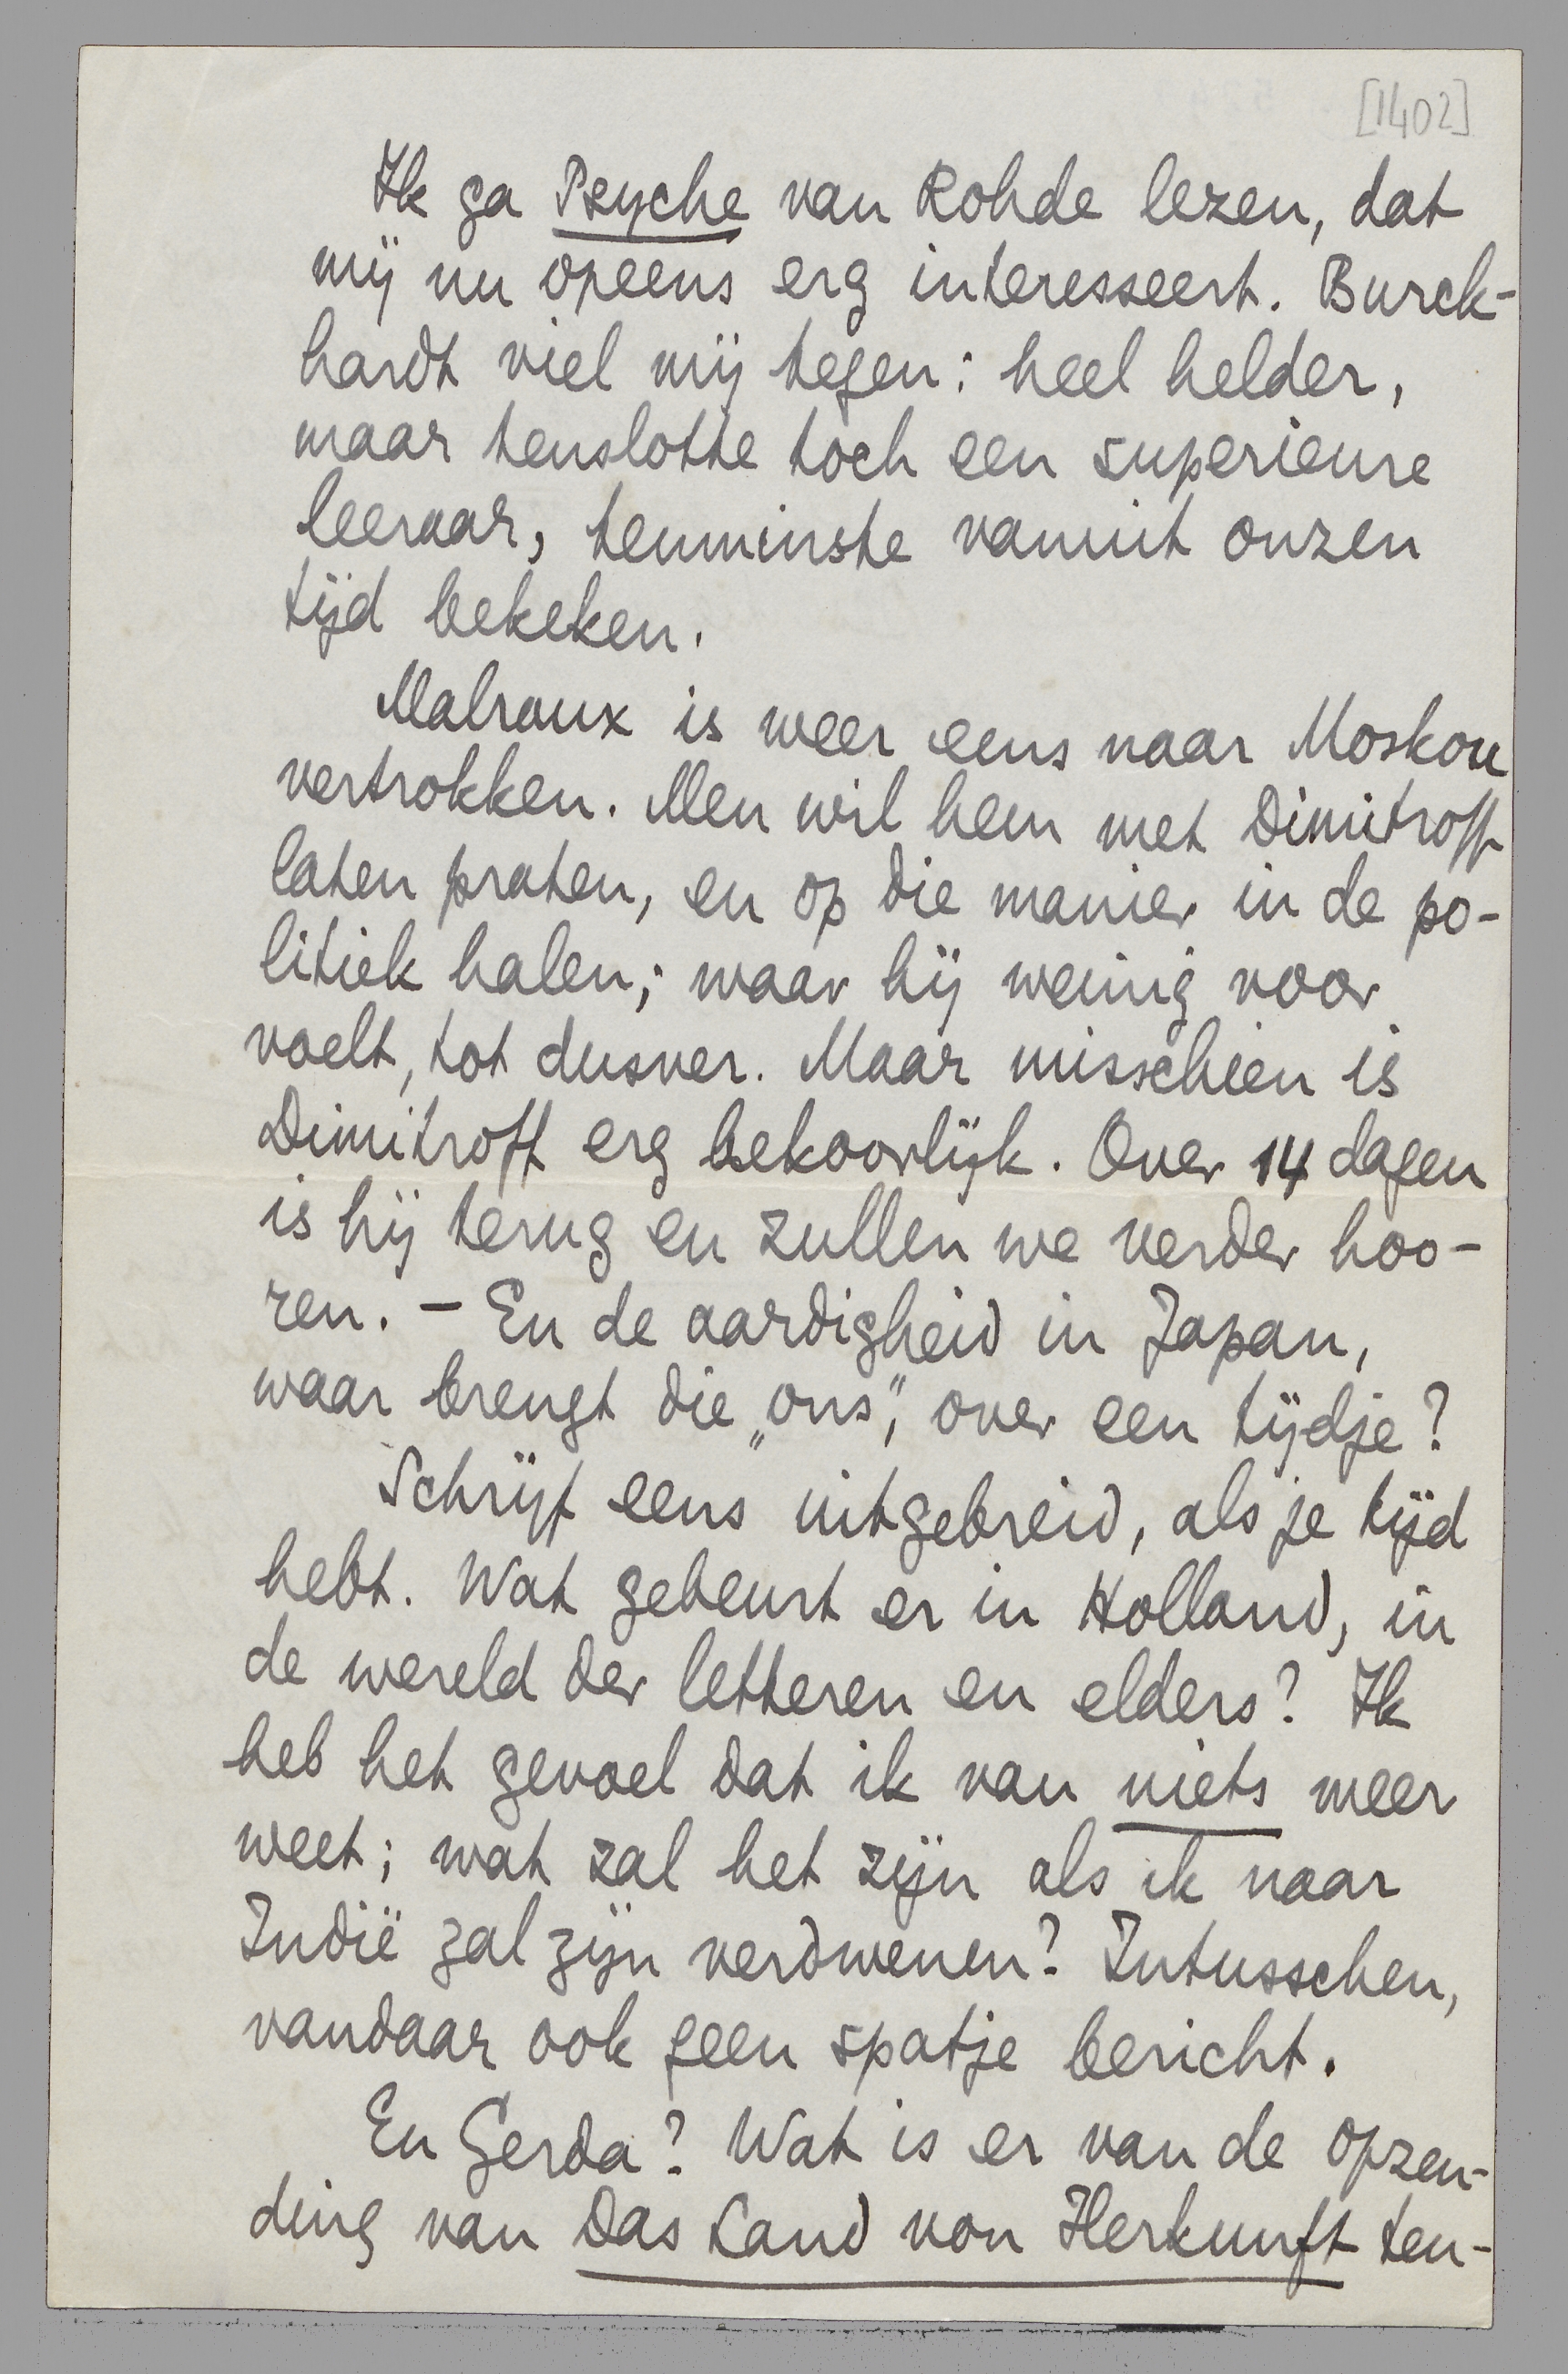 [1402]
Ik ga Psyche van Rohde lezen, dat
mij nu opeens erg interesseert. Burck-
hardt viel mij tegen: heel helder,
maar tenslotte toch een superieure
leeraar, tenminste vanuit onzen
tijd bekeken.
Malraux is weer eens naar Moskou
vertrokken. Men wil hem met Dimitroff
laten praten, en op die manier in de po-
litiek halen; waar hij weinig voor
voelt, tot dusver. Maar misschien is
Dimitroff erg bekoorlijk. Over 14 dagen
is hij terug en zullen we verder hoo-
ren. – En de aardigheid in Japan,
waar brengt die „ons”, over een tijdje?
Schrijf eens uitgebreid, als je tijd
hebt. Wat gebeurt er in Holland, in
de wereld der letteren en elders? Ik
heb het gevoel dat ik van niets meer
weet; wat zal het zijn als ik naar
Indië zal zijn verdwenen? Intusschen,
vandaar ook geen spatje bericht.
En Gerda? Wat is er van de opzen-
ding van Das Land von Herkunft ten-